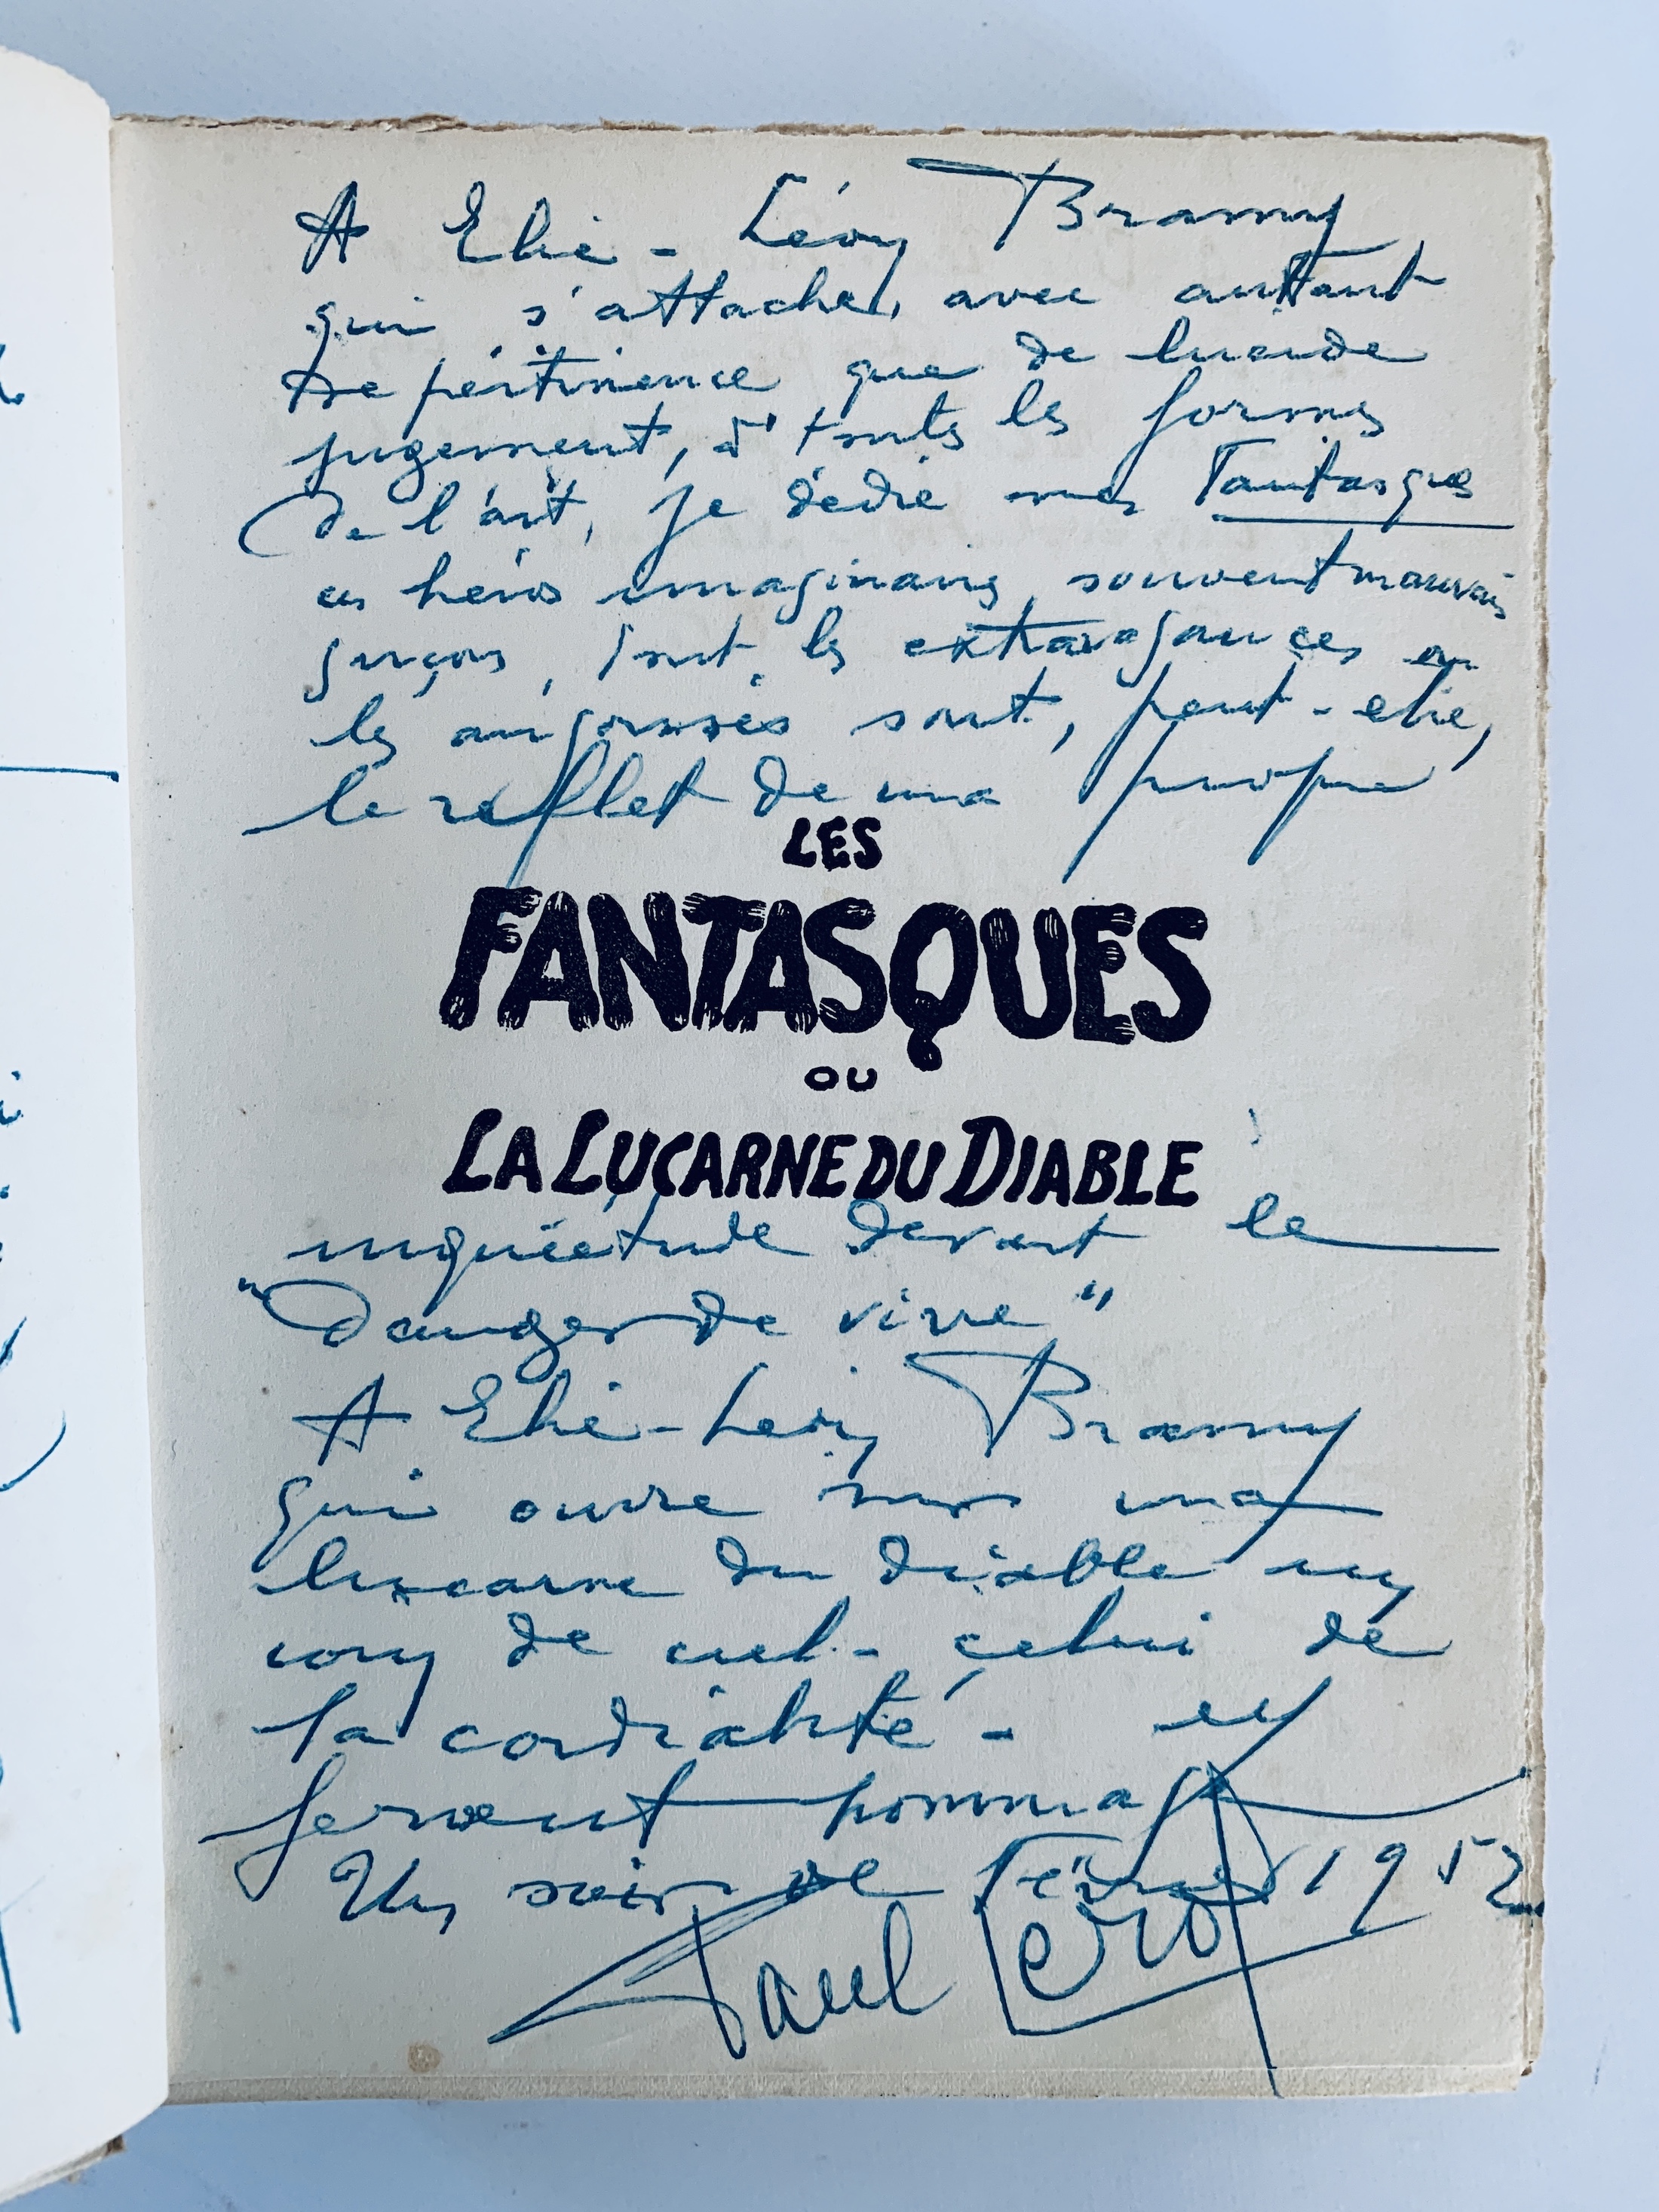 A Elie-Lévy Bramy,
qui s'attache, avec autant
de pertinence que de lucide
jugement, à toutes les formes
de l'art, je dédie mes Fantasques
ces héros imaginaires, souvent mauvais
garçons, dont les extravagances ou
les angoisses sont, peut-être,
le reflet de ma propre
LES
FANTASQUES
OU
LA LUCARNE DU DIABLE
inquiétude devant le
"Danger de vivre"
A Elie-Lévy Bramy
qui ouvre sur ma
lucarne du diable un
coin de ciel - celui de
la cordialité - en
fervent hommage
Un soir de Février 1952
Paul